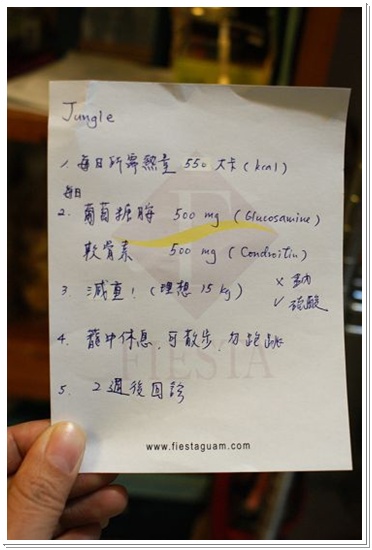 Jungle
1. 每日所需熱量 550 大卡 (kcal)
每日
2. 葡萄糖胺 500 mg (Glucosamine)
軟骨素 500 mg (Condroitin)
3. 減重! (理想 15 kg) × 鈉
✓ 硫酸
4. 籠中休息, 可散步, 勿跑跳
FIESTA
5. 2週後回診
www.fiestaguam.com